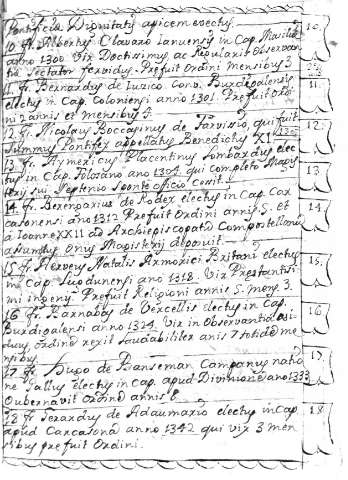 Pontificie Dignitatis apicem evectus.
10. fr. Albertus Clavaro Ianuensis in Cap. Massilie
anno 1300. Vir Doctissimus, ac Regularis Observan
tie Sectator fervidus. Prefuit Ordini mensibus 3
11. fr. Bernardus de Iuzico. Conv. Burdegalensis
electus in Cap. Coloniensi anno 1301. Prefuit Ordi
ni 2 annis et Mensibus 3.
12. fr. Nicolaus Boccasinus de Tarvisio, qui fuit
Summus Pontifex appellatus Benedictus XI. 1303
13. fr. Aymericus Placentinus Lombardus elec
tus in Cap. Tolosano ano 1304 qui completo Magis
terij sui Septenio sponte officio cessit.
14. fr. Berengarius de Rodex electus in Cap. Car
casonensi ano 1312 Prefuit Ordini annis 5. et
a Ioanne XXII de Archiepiscopatu Compostellano
assumptus Onus Magisterij deposuit.
15. fr. Herveus Natalis Armorici Britani electus
in cap. Lugdunensi ano 1318. Vir Prestantissi
mi ingeny. Prefuit Religioni annis 5. mens. 3.
16. fr. Barnabas de Vercellis electus in Cap.
Burdigalensi anno 1324. Vir in Observantia assi
duus ordine rexit laudabiliter anis 7 totide me
sibus
17. fr. Hugo de Banseman Campanus natio
ne Gallus electus in cap. apud Divinione ano 1333
Gubernavit ordine annis 8.
18. fr. Gerardus de Adaumario electus in Cap.
apud Carcasona anno 1342 qui vix 3 men
sibus prefuit Ordini.
10.
11.
12.
13
14.
15.
16
17.
18